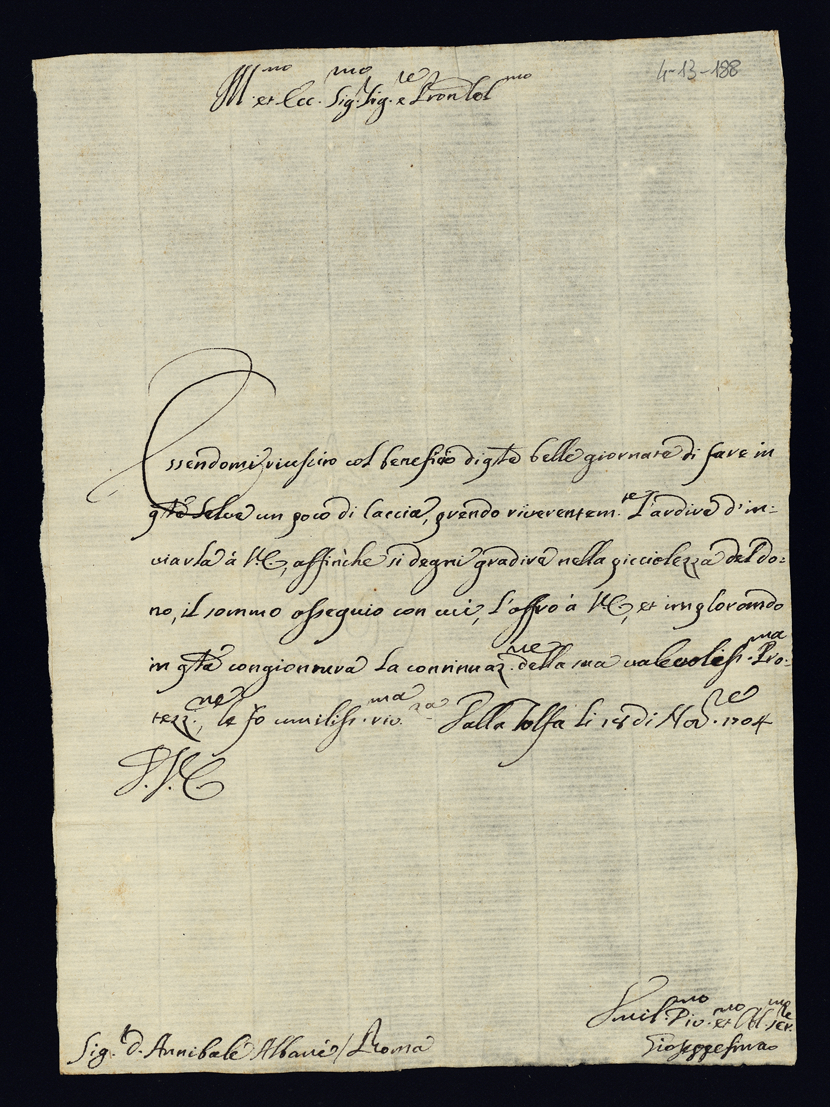 4-13-188
Ill.mo et Ecc.mo Sig.r Sig.re e Pron Col.mo
Essendomi riuscito col beneficio di q.te belle giornate di fare in
q.te Selve un poco di Caccia, prendo riverentem.te l'ardire d'in=
viarla à V.E., affinche si degni gradire nella picciolezza del do=
no, il sommo ossequio con cui, l'offro à V.E., et implorando
in q.ta congiontura la continuaz.ne della sua valevoliss.ma Pro=
tezz.ne, le fo umiliss. riv.za Dalla Tolfa li 18 di Nov.re 1704
D.V.E.
Sig.r d. Annibale Albani / Roma
Umil.mo Div.mo et Obl.mo ser.re
Gioseppe